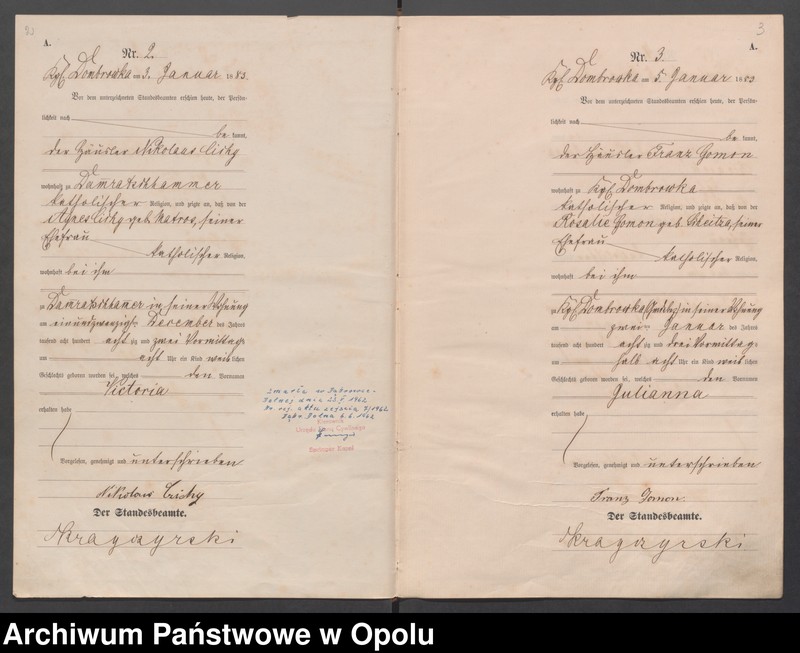 A.
Nr. 2.
Kgl. Dombrowka am 3. Januar 1883.
Vor dem unterzeichneten Standesbeamten erschien heute, der Persön-
lichkeit nach
be kannt,
der Häusler Nikolaus Cichy
wohnhaft zu Damratschhammer
katholischer Religion, und zeigte an, daß von der
Agnes Cichy geb. Matros, seiner
Ehefrau
katholischer Religion,
wohnhaft bei ihm
zu Damratschhamer in seiner Wohnung
am einundzwanzigst December des Jahres
tausend acht hundert achtzig und zwei Vormittags
um acht Uhr ein Kind weiblichen
Geschlechts geboren worden sei, welches den Vornamen
Victoria
erhalten habe
Vorgelesen, genehmigt und unterschrieben
Nikolaus Cichy
Der Standesbeamte.
Zmarła w
Dolnej dnia 1962
Nr. 9/1962
Dolna 1962
Kierownik
Urzędu Stanu Cywilnego
3
Nr. 3.
A.
Kgl. Dombrowka am 5. Januar 1883
Vor dem unterzeichneten Standesbeamten erschien heute, der Persön-
lichkeit nach
be kannt,
der Häusler Franz Gomon
wohnhaft zu Kgl. Dombrowka
katholischer Religion, und zeigte an, daß von der
Rosalie Gomon geb. seiner
Ehefrau
katholischer Religion,
wohnhaft bei ihm
zu Kgl. Dombrowka in seiner Wohnung
am zwei Januar des Jahres
tausend acht hundert achtzig und drei Vormittags
um halb acht Uhr ein Kind weiblichen
Geschlechts geboren worden sei, welches den Vornamen
Julianna
erhalten habe
Vorgelesen, genehmigt und unterschrieben
Franz Gomon.
Der Standesbeamte.
Archiwum Państwowe w Opolu